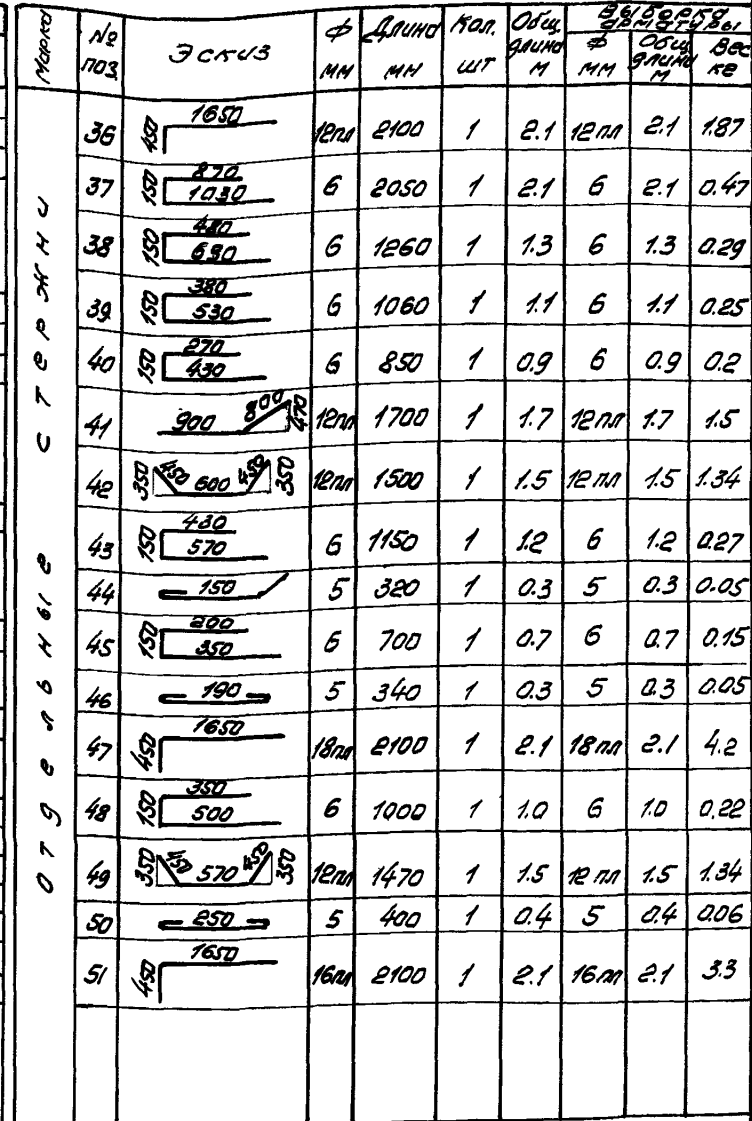 Марка
№ поз.
Эскиз
Ф мм
Длина мм
Кол. шт
Общ. длина м
Выборка арматуры
Ф мм
Общ. длина м
Вес кг
Отдельные стержни
36 450 1650 12пл 2100 1 2.1 12пл 2.1 1.87
37 150 870 1030 6 2050 1 2.1 6 2.1 0.47
38 150 480 690 6 1260 1 1.3 6 1.3 0.29
39 150 380 530 6 1060 1 1.1 6 1.1 0.25
40 150 270 430 6 850 1 0.9 6 0.9 0.2
41 900 800 470 12пл 1700 1 1.7 12пл 1.7 1.5
42 350 450 600 450 350 12пл 1500 1 1.5 12пл 1.5 1.34
43 150 430 570 6 1150 1 1.2 6 1.2 0.27
44 150 5 320 1 0.3 5 0.3 0.05
45 150 200 350 6 700 1 0.7 6 0.7 0.15
46 190 5 340 1 0.3 5 0.3 0.05
47 450 1650 18пл 2100 1 2.1 18пл 2.1 4.2
48 150 350 500 6 1000 1 1.0 6 1.0 0.22
49 350 450 570 450 350 12пл 1470 1 1.5 12пл 1.5 1.34
50 250 5 400 1 0.4 5 0.4 0.06
51 450 1650 16пл 2100 1 2.1 16пл 2.1 3.3